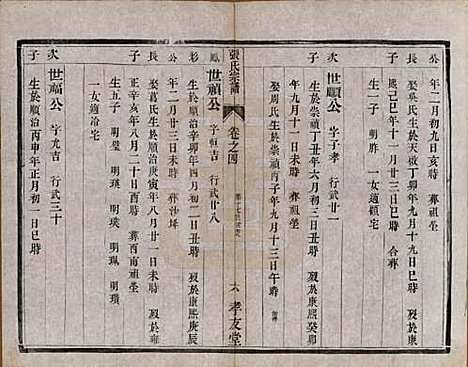 公年二月初九日亥時 葬祖塋
長 娶吳氏生於天啟丁卯年九月十九日巳時 歿於康
熙己巳年十一月廿三日丑時 合葬
子 生一子 明胙 一女適鎖宅
次 世顯公 字子孝 行武廿一
生於崇禎丁丑年六月初三日丑時 歿於康熙癸卯
年九月十一日戌時 葬祖塋
子 娶周氏生於崇禎丙子年九月十三日午時
張氏宗譜 卷之四 六 孝友堂
鳳 世禎公 字恒吉 行武廿八
彩 生於順治辛卯年四月初二日丑時 歿於康熙庚辰
公 年二月廿三日未時 葬沙坪
長 娶葛氏生於順治庚寅年八月廿一日丑時 歿於雍
正癸卯年八月二十日酉時 葬酉南祖塋
子 生五子 明璧 明瑛 明瑤 明珮 明瓚
一女適冶宅
次 世福公 字九吉 行武三十
子 生於順治丙申年正月初一日巳時